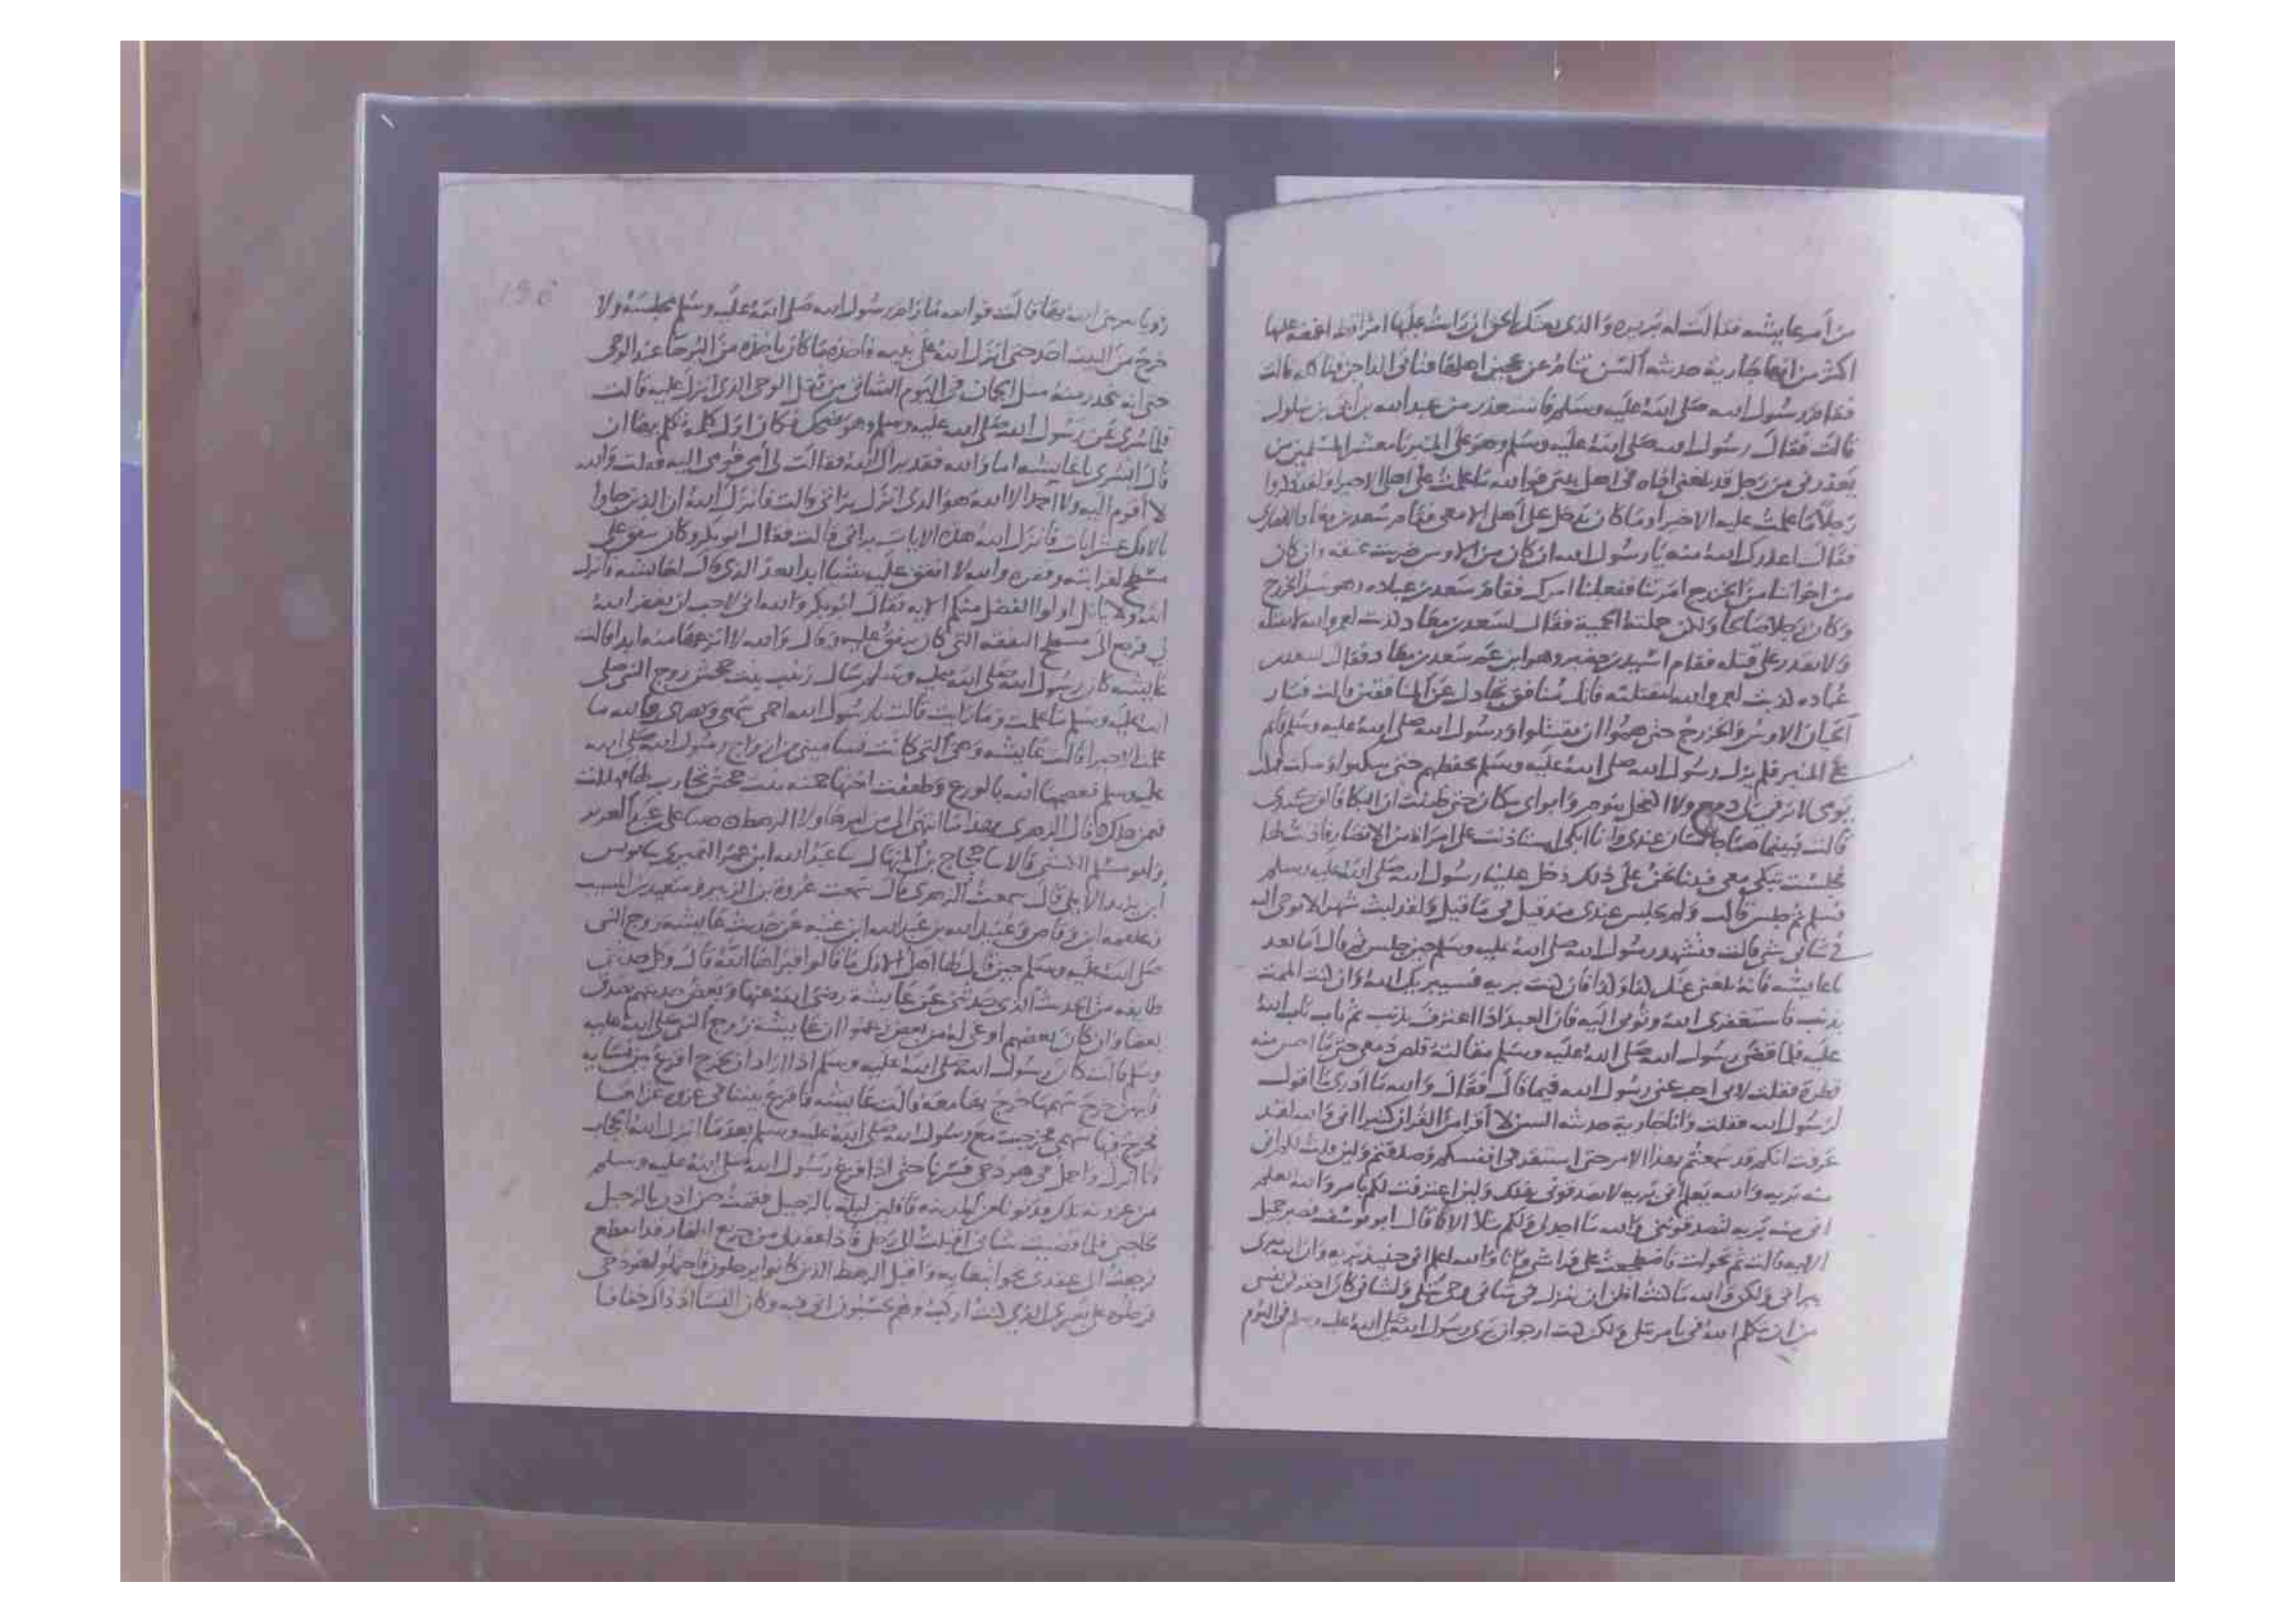 من أمر عايشه فقالت له بريره والذي بعثك بالحق ان رايت عليها امرا قط اغمصه عليها
اكثر من انها جارية حديثه السن تنام عن عجين اهلها فتاتي الداجن فتاكله قالت
فقام رسول الله صلى الله عليه وسلم فاستعذر من عبد الله بن أبي بن سلول
قالت فقال رسول الله صلى الله عليه وسلم وهو على المنبر يا معشر المسلمين من
يعذرني من رجل قد بلغني اذاه في اهل بيتي فوالله ما علمت على اهلي الا خيرا ولقد ذكروا
رجلا ما علمت عليه الا خيرا وما كان يدخل على أهلي الا معي فقام سعد بن معاذ الانصاري
فقال اعذرك الله منه يا رسول الله ان كان من الاوس ضربت عنقه وان كان
من اخواننا من الخزرج امرتنا ففعلنا امرك فقام سعد بن عباده وهو سيد الخزرج
وكان رجلا صالحا ولكن حملته الحمية فقال لسعد بن معاذ كذبت لعمر والله لا تقتله
ولا تقدر على قتله فقام اسيد بن حضير وهو ابن عم سعد بن معاذ فقال لسعد بن
عباده كذبت لعمر والله لنقتلنه فانك منافق تجادل عن المنافقين قالت فثار
الحيان الاوس والخزرج حتى هموا ان يقتتلوا ورسول الله صلى الله عليه وسلم قايم
على المنبر فلم يزل رسول الله صلى الله عليه وسلم يخفضهم حتى سكتوا وسكت فبكيت
يومي لا يرقي لي دمع ولا اكتحل بنوم وابواي يظنان حتى ظننت ان البكا فالق كبدي
قالت فبينما هما جالسان عندي وانا ابكي استاذنت علي امراة من الانصار فاذنت لها
فجلست تبكي معي فبينا نحن على ذلك دخل علينا رسول الله صلى الله عليه وسلم
فسلم ثم جلس قالت ولم يجلس عندي منذ قيل لي ما قيل ولقد لبث شهرا لا يوحي اليه
في شاني شي قالت فتشهد رسول الله صلى الله عليه وسلم حين جلس ثم قال اما بعد
يا عايشه فانه بلغني عنك كذا وكذا فان كنت بريه فسيبريك الله وان كنت الممت
بذنب فاستغفري الله وتوبي اليه فان العبد اذا اعترف بذنب ثم تاب تاب الله
عليه فلما قضى رسول الله صلى الله عليه وسلم مقالته قلص دمعي حتى ما احس منه
قطرة فقلت لابي اجب عني رسول الله فيما قال فقال والله ما أدري ما اقول
لرسول الله فقلت وانا جارية حديثه السن لا أقرا من القران كثيرا اني والله لقد
عرفت انكم قد سمعتم بهذا الامر حتى استقر في انفسكم وصدقتم ولين قلت لكم اني
منه بريه والله يعلم أني بريه لا تصدقوني بذلك ولين اعترفت لكم بامر والله يعلم
اني منه بريه لتصدقونني والله ما اجد لي ولكم مثلا الا كما قال ابو يوسف فصبر جميل
الايه قالت ثم تحولت فاضطجعت على فراشي وانا والله اعلم اني حينيذ بريه وان الله مبري
ببراتي ولكن والله ما كنت اظن ان ينزل في شاني وحي يتلى ولشاني كان احقر في نفسي
من ان يتكلم الله في بامر يتلى ولكن كنت ارجو ان يري رسول الله صلى الله عليه وسلم في النوم
195
رويا يبرئني الله بها قالت فوالله ما رام رسول الله صلى الله عليه وسلم مجلسه ولا
خرج من البيت احد حتى انزل الله على نبيه فاخذه ما كان ياخذه من البرحا عند الوحي
حتى انه تحدر منه مثل الجمان في اليوم الشاتي من ثقل الوحي الذي انزل عليه قالت
فلما سري عن رسول الله صلى الله عليه وسلم وهو يضحك فكان اول كلمه تكلم بها ان
قال ابشري يا عايشه اما والله فقد براك الله فقالت لي أمي قومي اليه فقلت والله
لا أقوم اليه ولا احمد الا الله هو الذي انزل براتي قالت فانزل الله ان الذين جاوا
بالافك عشر ايات فانزل الله هذه الايات براتي قالت فقال ابو بكر وكان ينفق على
مسطح لقرابته وفقره والله لا انفق عليه شيا ابدا بعد الذي قال لعايشه فانزل
الله ولا ياتل اولوا الفضل منكم الايه فقال ابو بكر والله اني لاحب ان يغفر الله
لي فرجع الى مسطح النفقه التي كان ينفق عليه وقال والله لا انزعها منه ابدا قالت
عايشه كان رسول الله صلى الله عليه وسلم سال زينب بنت جحش زوج النبي صلى
الله عليه وسلم ما علمت وما رايت قالت يا رسول الله احمي سمعي وبصري والله ما
علمت الا خيرا قالت عايشه وهي التي كانت تساميني من ازواج رسول الله صلى الله
عليه وسلم فعصمها الله بالورع وطفقت اختها حمنه بنت جحش تحارب لها فهلكت
فيمن هلك قال الزهري بهذا ما انتهى الينا من امر هاولا الرهط حدثنا علي بن عبد العزيز
وابو مسلم الكشي قالا حدثنا حجاج بن المنهال ثنا عبد الله ابن عمر النميري ثنا يونس
ابن يزيد الايلي قال سمعت الزهري قال سمعت عروة بن الزبير وسعيد بن المسيب
وعلقمه ابن وقاص وعبيد الله بن عبد الله ابن عتبه عن حديث عايشه زوج النبي
صلى الله عليه وسلم حين قال لها اهل الافك ما قالوا فبراها الله قال وكل حدثني
طايفه من الحديث الذي حدثني عن عايشة رضي الله عنها وبعض حديثهم يصدق
بعضا وان كان بعضهم اوعى له من بعض زعموا ان عايشة زوج النبي صلى الله عليه
وسلم قالت كان رسول الله صلى الله عليه وسلم اذا اراد ان يخرج اقرع بين نسايه
فايتهن خرج سهمها خرج بها معه قالت عايشه فاقرع بيننا في غزوه غزاها
فخرج فيها سهمي فخرجت مع رسول الله صلى الله عليه وسلم بعد ما انزل الله الحجاب
فانا انزل واحمل في هودجي فسرنا حتى اذا فرغ رسول الله صلى الله عليه وسلم
من غزوته تلك ودنونا من المدينه قافلين ليله بالرحيل فقمت حين اذن بالرحيل
لحاجتي فلما قضيت شاني اقبلت الى رحلي فاذا عقد لي من جزع اظفار قد انقطع
فرجعت الى عقدي فحبسني ابتغايه واقبل الرهط الذين كانوا يرحلون فاحتملوا هودجي
فرحلوه على بعيري الذي كنت اركب وهم يحسبون اني فيه وكان النسا اذ ذاك خفافا